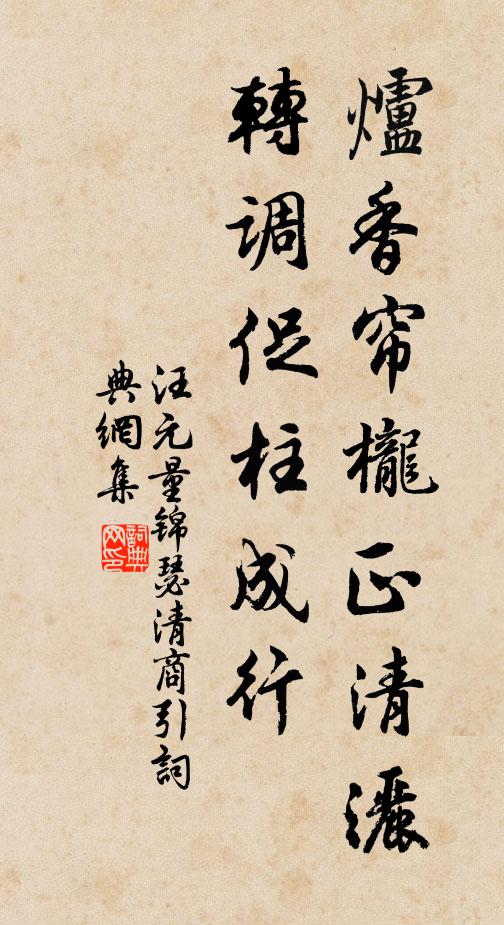 爐香帘櫳正清灑
轉調促柱成行
汪元量錦瑟清商引詞
典網集
詞典網印